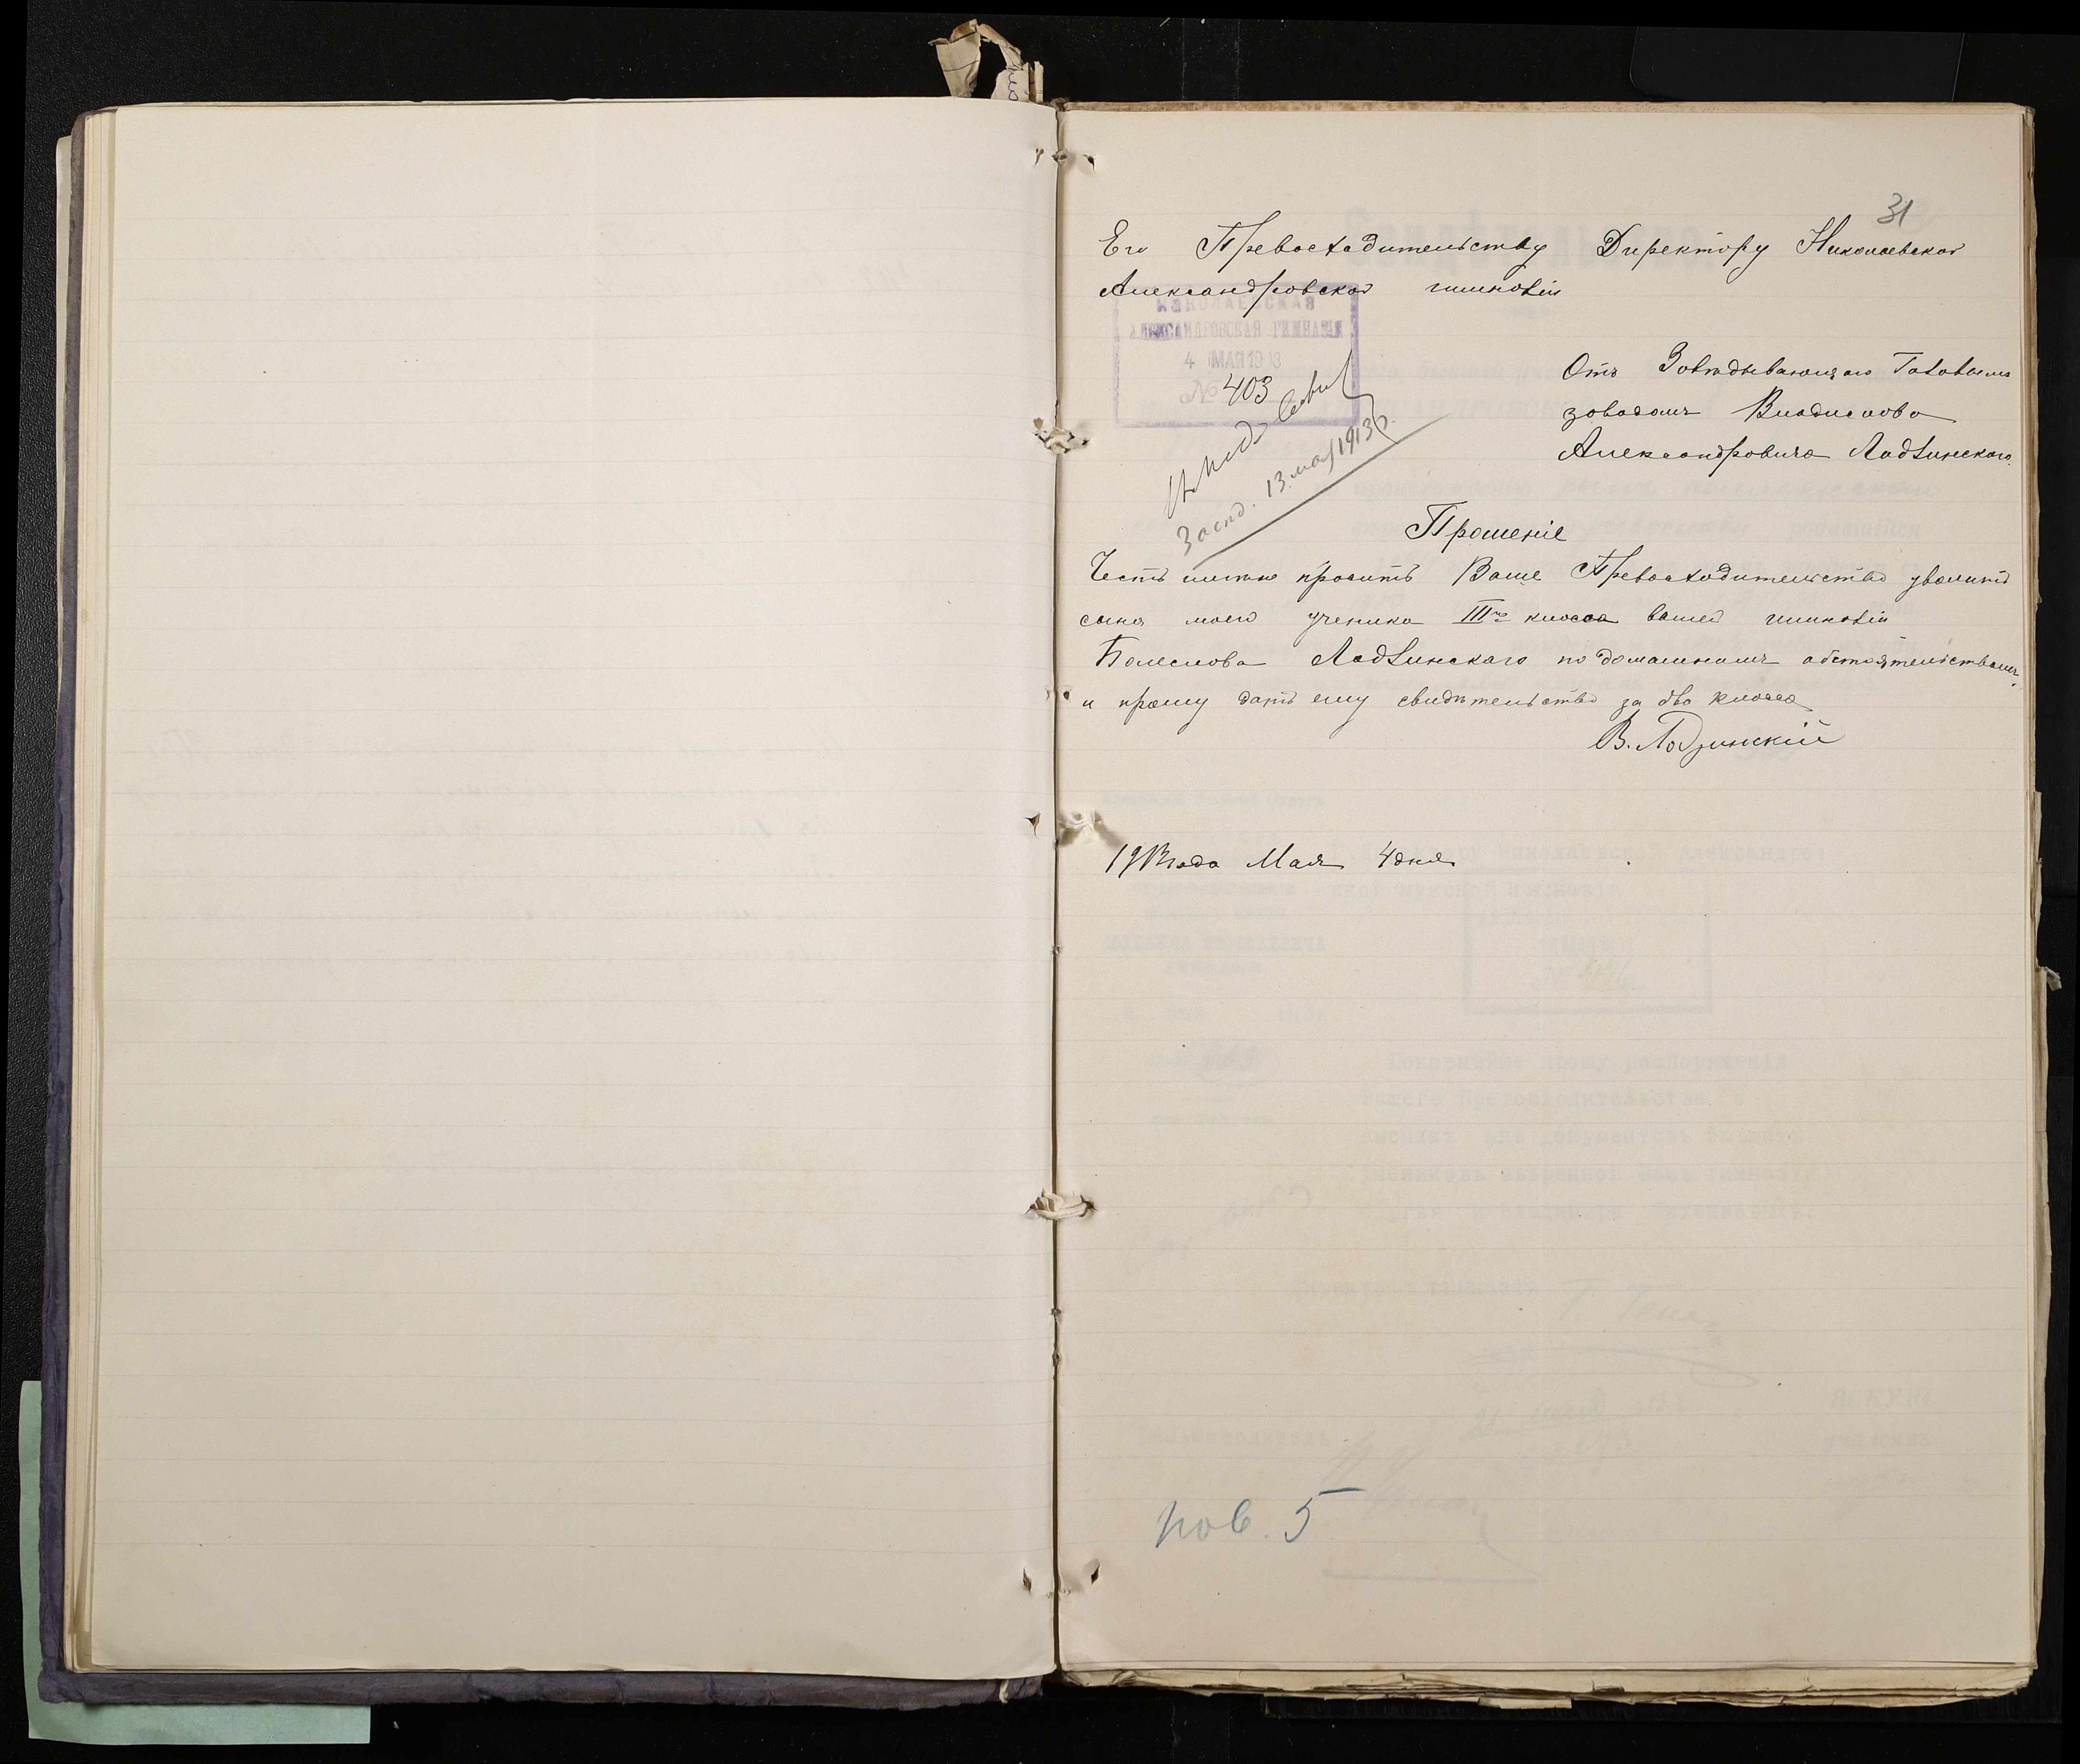 31
Его Превосходительству Директору Николаевской
Александровской гимназіи
НИКОЛАЕВСКАЯ
АЛЕКСАНДРОВСКАЯ ГИМНАЗІЯ
4 МАЯ 1913
№ 403
Засѣд. 13 мая 1913 г.
Отъ Завѣдывающаго Газовымъ
заводомъ Владислава
Александровича Лодзинскаго.
Прошеніе
Честь имѣю просить Ваше Превосходительство уволить
сына моего ученика III го класса вашей гимназіи
Болеслава Лодзинскаго по домашнимъ обстоятельствамъ
и прошу дать ему свидѣтельство за два класса
В. Лодзинскій
1913 года Мая 4 дня
пов. 5